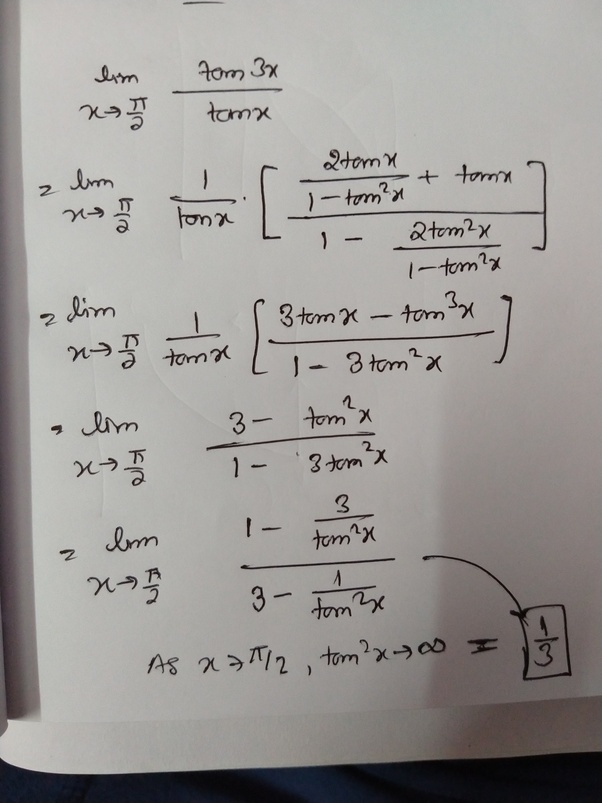 lim x→π/2 tan 3x / tan x
= lim x→π/2 1/tan x · [ (2tan x / (1 − tan²x) + tan x) / (1 − 2tan²x / (1 − tan²x)) ]
= lim x→π/2 1/tan x [ (3tan x − tan³x) / (1 − 3tan²x) ]
= lim x→π/2 (3 − tan²x) / (1 − 3tan²x)
= lim x→π/2 (1 − 3/tan²x) / (3 − 1/tan²x)
As x→π/2, tan²x→∞ = 1/3